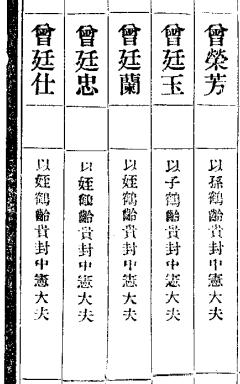 曾榮芳
以孫鶴齡貴封中憲大夫
曾廷玉
以子鶴齡貴封中憲大夫
曾廷蘭
以姪鶴齡貴封中憲大夫
曾廷忠
以姪鶴齡貴封中憲大夫
曾廷仕
以姪鶴齡貴封中憲大夫